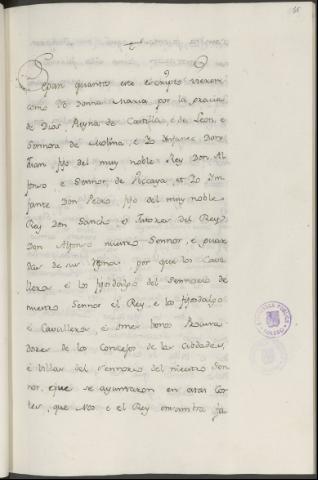 Sepan quantos este escripto vieren
como Yo Donna Maria por la gracia
de Dios, Reyna de Castilla, e de Leon, e
Sennora de Molina, e Yo Infante Don
Juan, fijo del muy noble Rey Don Al
fonso e Sennor, de Vizcaya, et Yo In
fante Don Pedro, fijo del muy noble
Rey Don Sancho e Tutores del Rey
Don Alfonso nuestro Sennor, e guar
das de sus Regnos: por que los Cava
lleros e los fijosdalgo del Sennorio de
nuestro Sennor el Rey, e los fijosdalgo
e Cavalleros, e omes bonos Procura
dores de los Concejos de las Cibdades,
e Villas del Sennorio del nuestro Sen
nor, que se ayuntaron en estas Cor
tes, que Nos e el Rey